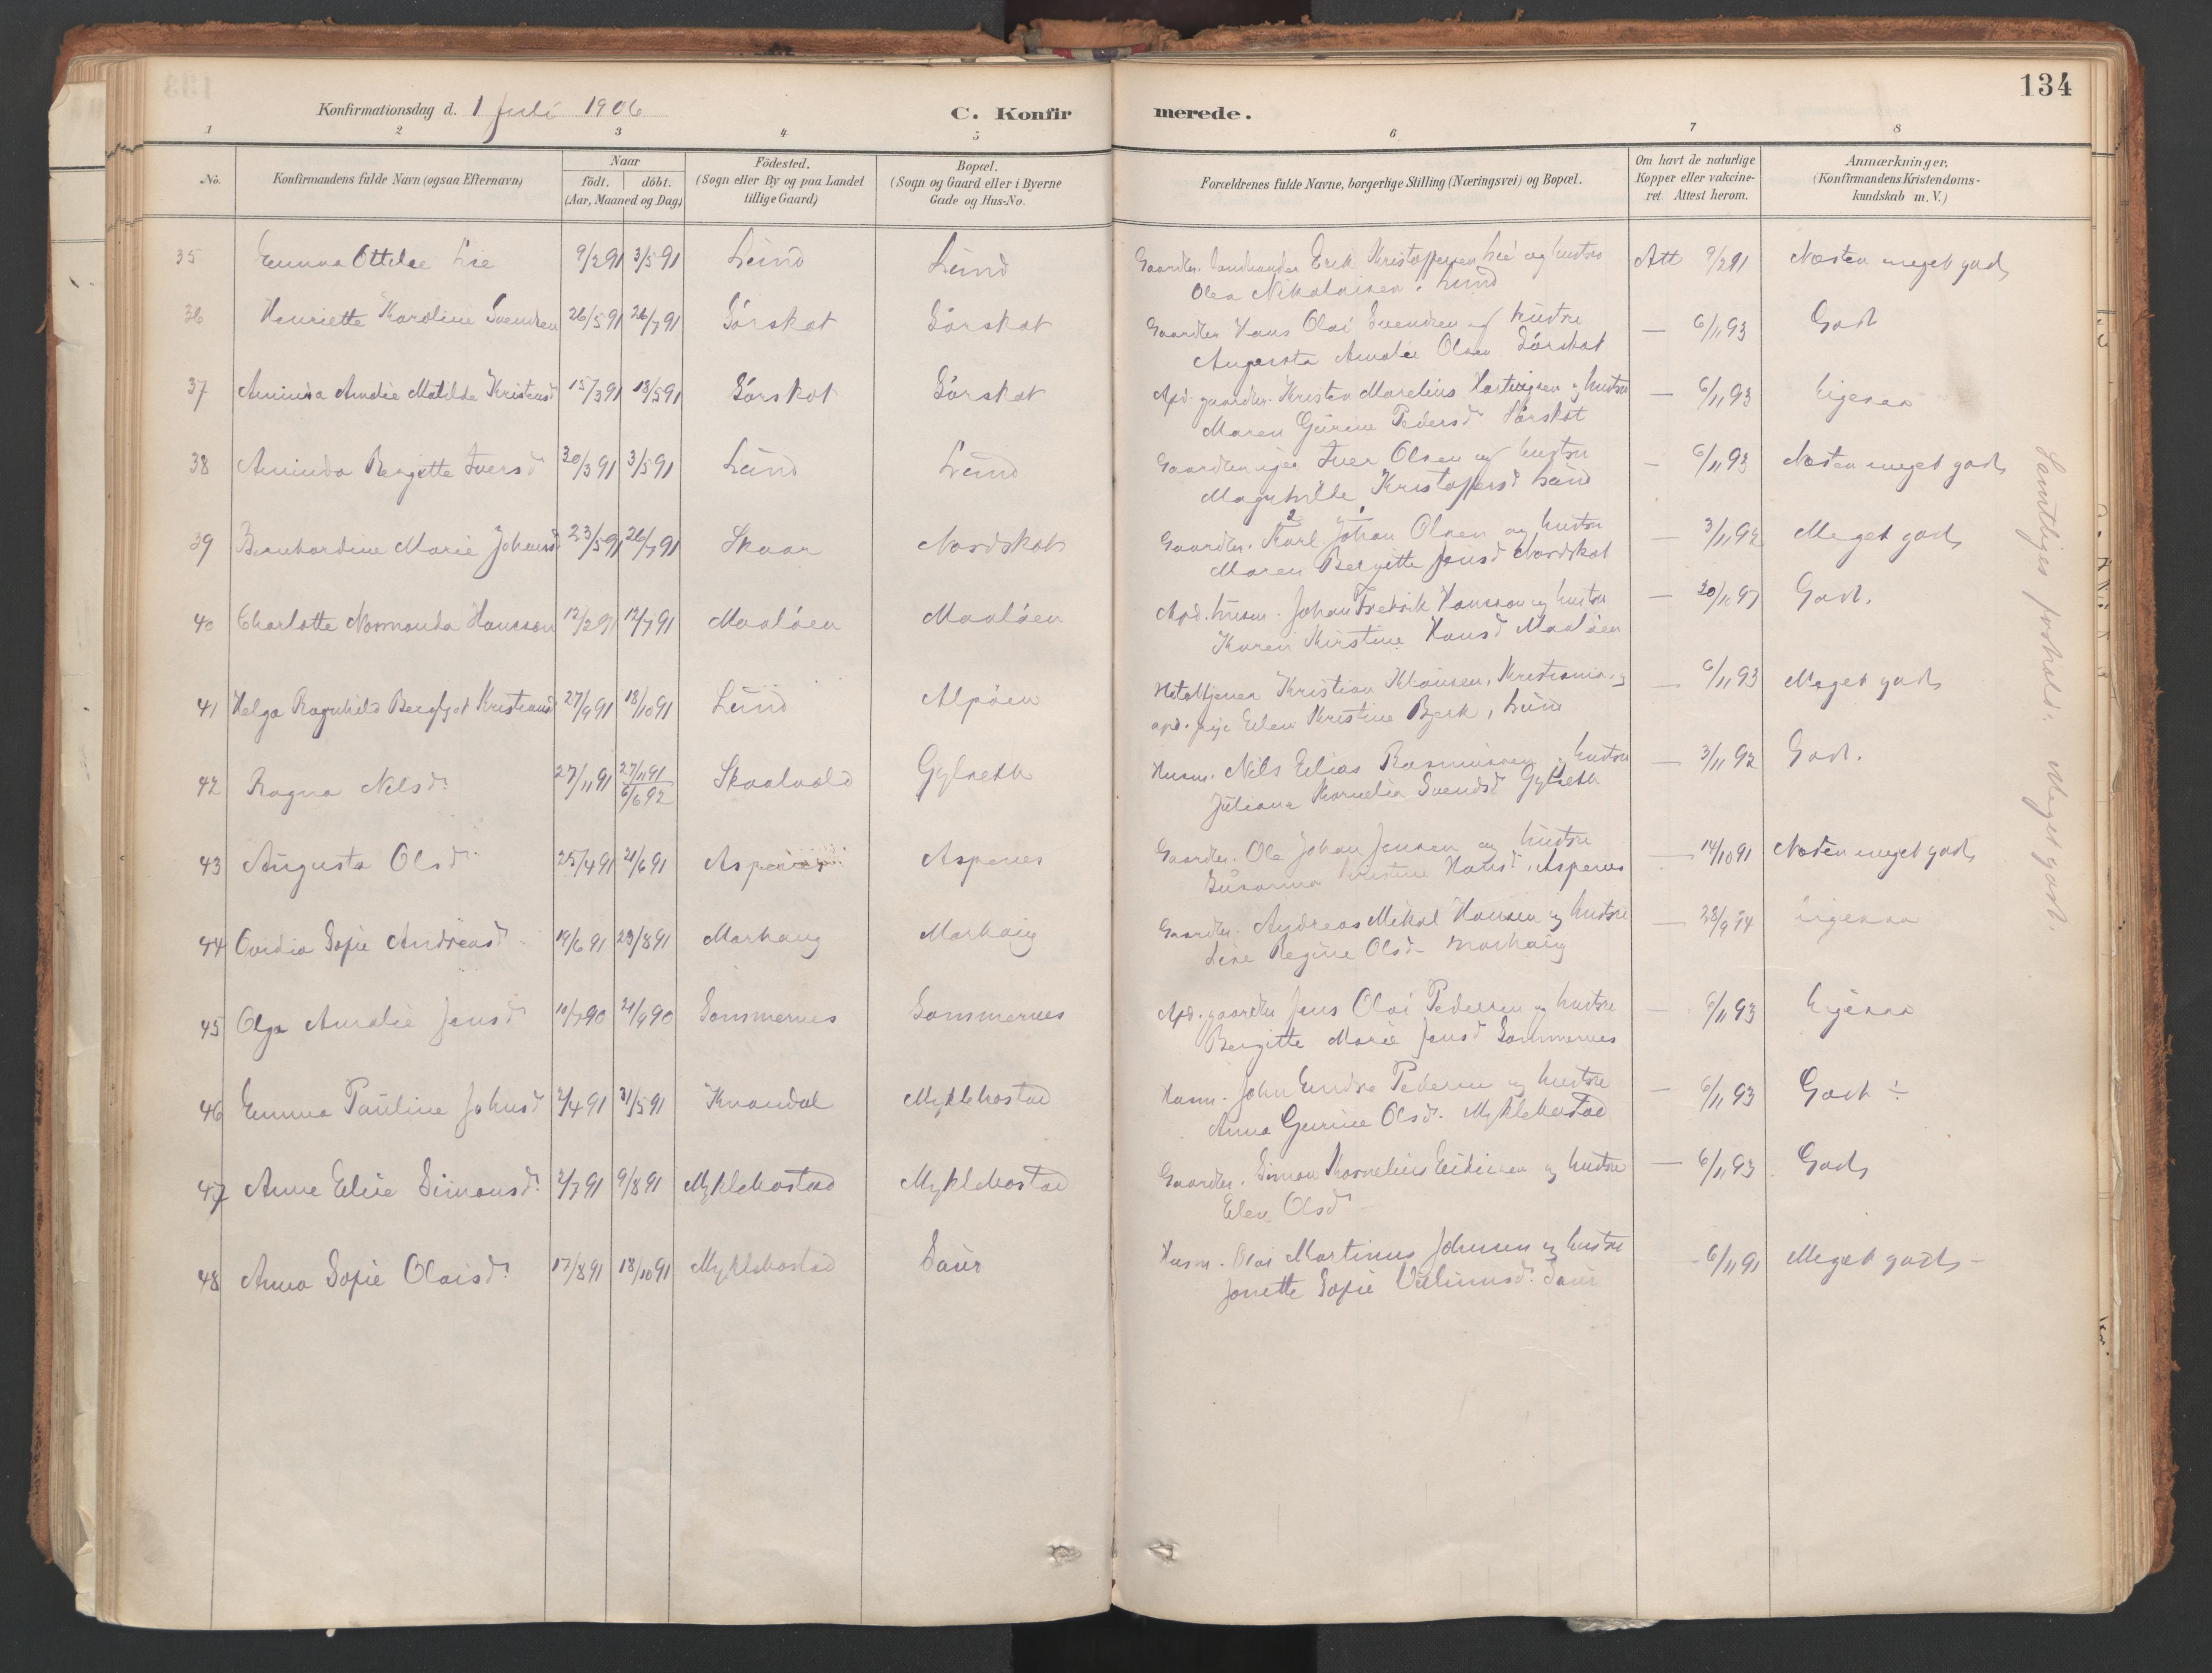 134
Konfirmationsdag d. 1 Juli 1906 C. Konfirmerede.
1 2 3 4 5 6 7 8
No. Konfirmandens fulde Navn (ogsaa Efternavn) Naar födt. döbt. (Aar, Maaned og Dag) Födested. (Sogn eller By og paa Landet tillige Gaard) Bopæl. (Sogn og Gaard eller i Byerne Gade og Hus-No. Forældrenes fulde Navne, borgerlige Stilling (Næringsvei) og Bopæl. Om havt de naturlige Kopper eller vakcineret. Attest herom. Anmærkninger. (Konfirmandens Kristendomskundskab m. V.)
35 Emma Ottilie Lie 9/2 91 3/5 91 Lund Lund Gaardbr. Landhandler Erik Kristoffersen Lie og hustru Att 9/2 91 Næsten meget godt
Olea Nikolaisen, Lund
36 Henriette Karoline Svendsen 26/5 91 26/7 91 Sörskot Sörskot Gaardbr. Hans Olai Svendsen og hustru — 6/11 93 Godt
Augusta Amalie Olsen Sörskot
37 Aminda Amalie Matilde Kristensd 15/3 91 18/5 91 Sörskot Sörskot Apd. gaardbr. Kristen Marelius Hartvigsen og hustru — 6/11 93 Ligesaa
Maren Gurine Pedersd Sörskot
38 Aminda Bergitte Iversd 30/3 91 3/5 91 Lund Lund Iver Olsen og hustru — 6/11 93 Næsten meget godt
Magnhilde Kristoffersd Lund
39 Bernhardine Marie Johansd 23/5 91 26/7 91 Skaar Nordskot Gaardbr. Karl Johan Olsen og hustru — 3/11 92 Meget godt
2 1
Maren Bergitte Jensd Nordskot
40 Charlotte Normanda Hansson 12/2 91 12/7 91 Maalöen Maalöen Apd. husm. Johan Fredrik Hansson og hustru — 20/10 97 Godt.
Karen Kirstine Hansd Maalöen
41 Helga Ragnhild Bergljot Kristiansd 27/9 91 18/10 91 Lund Alpöen Hoteltjener Kristian Klausen, Kristiania, og — 6/11 93 Meget godt
apd. pige Elen Kristine Bjerk, Lund
42 Ragna Nelsd. 27/11 91 27/11 91 6/6 92 Skaalvold Gylseth Husm. Nils Elias Rasmussen og hustru — 3/11 92 Godt.
Juliane Kornelia Svendsd Gylseth
43 Augusta Olsd. 25/4 91 21/6 91 Aspenes Aspenes Gaardbr. Ole Johan Jensen og hustru — 14/10 91 Næsten meget godt
Susanna Kristine Hansd, Aspenes
44 Ovidia Sofie Andreasd. 19/6 91 23/8 91 Marhaug Marhaug Gaardbr. Andreas Mikal Hansen og hustru — 28/9 94 Ligesaa
Line Regine Olsd. Marhaug
45 Olga Amalie Jensd 10/7 90 21/9 90 Sommernes Sommernes Apd. gaardbr. Jens Olai Pedersen og hustru — 6/11 93 Ligesaa
Bergitte Marie Jensd Sommernes
46 Emma Pauline Johnsd 2/4 91 31/5 91 Knandal Myklebostad Husm. John Endre Pedersen og hustru — 6/11 93 Godt ÷
Anna Gurine Olsd. Myklebostad
47 Anne Elise Simonsd. 2/7 91 9/8 91 Myklebostad Myklebostad Gaardbr. Simon Kornelius Eidissen og hustru — 6/11 93 Godt
Elen Olsd.
48 Anna Sofie Olaisd. 17/8 91 18/10 91 Myklebostad Saur Husm. Olai Martinus Johnsen og hustru - 6/11 91 Meget godt -
Jonette Sofie Saur
Samtliges forhold: Meget godt.